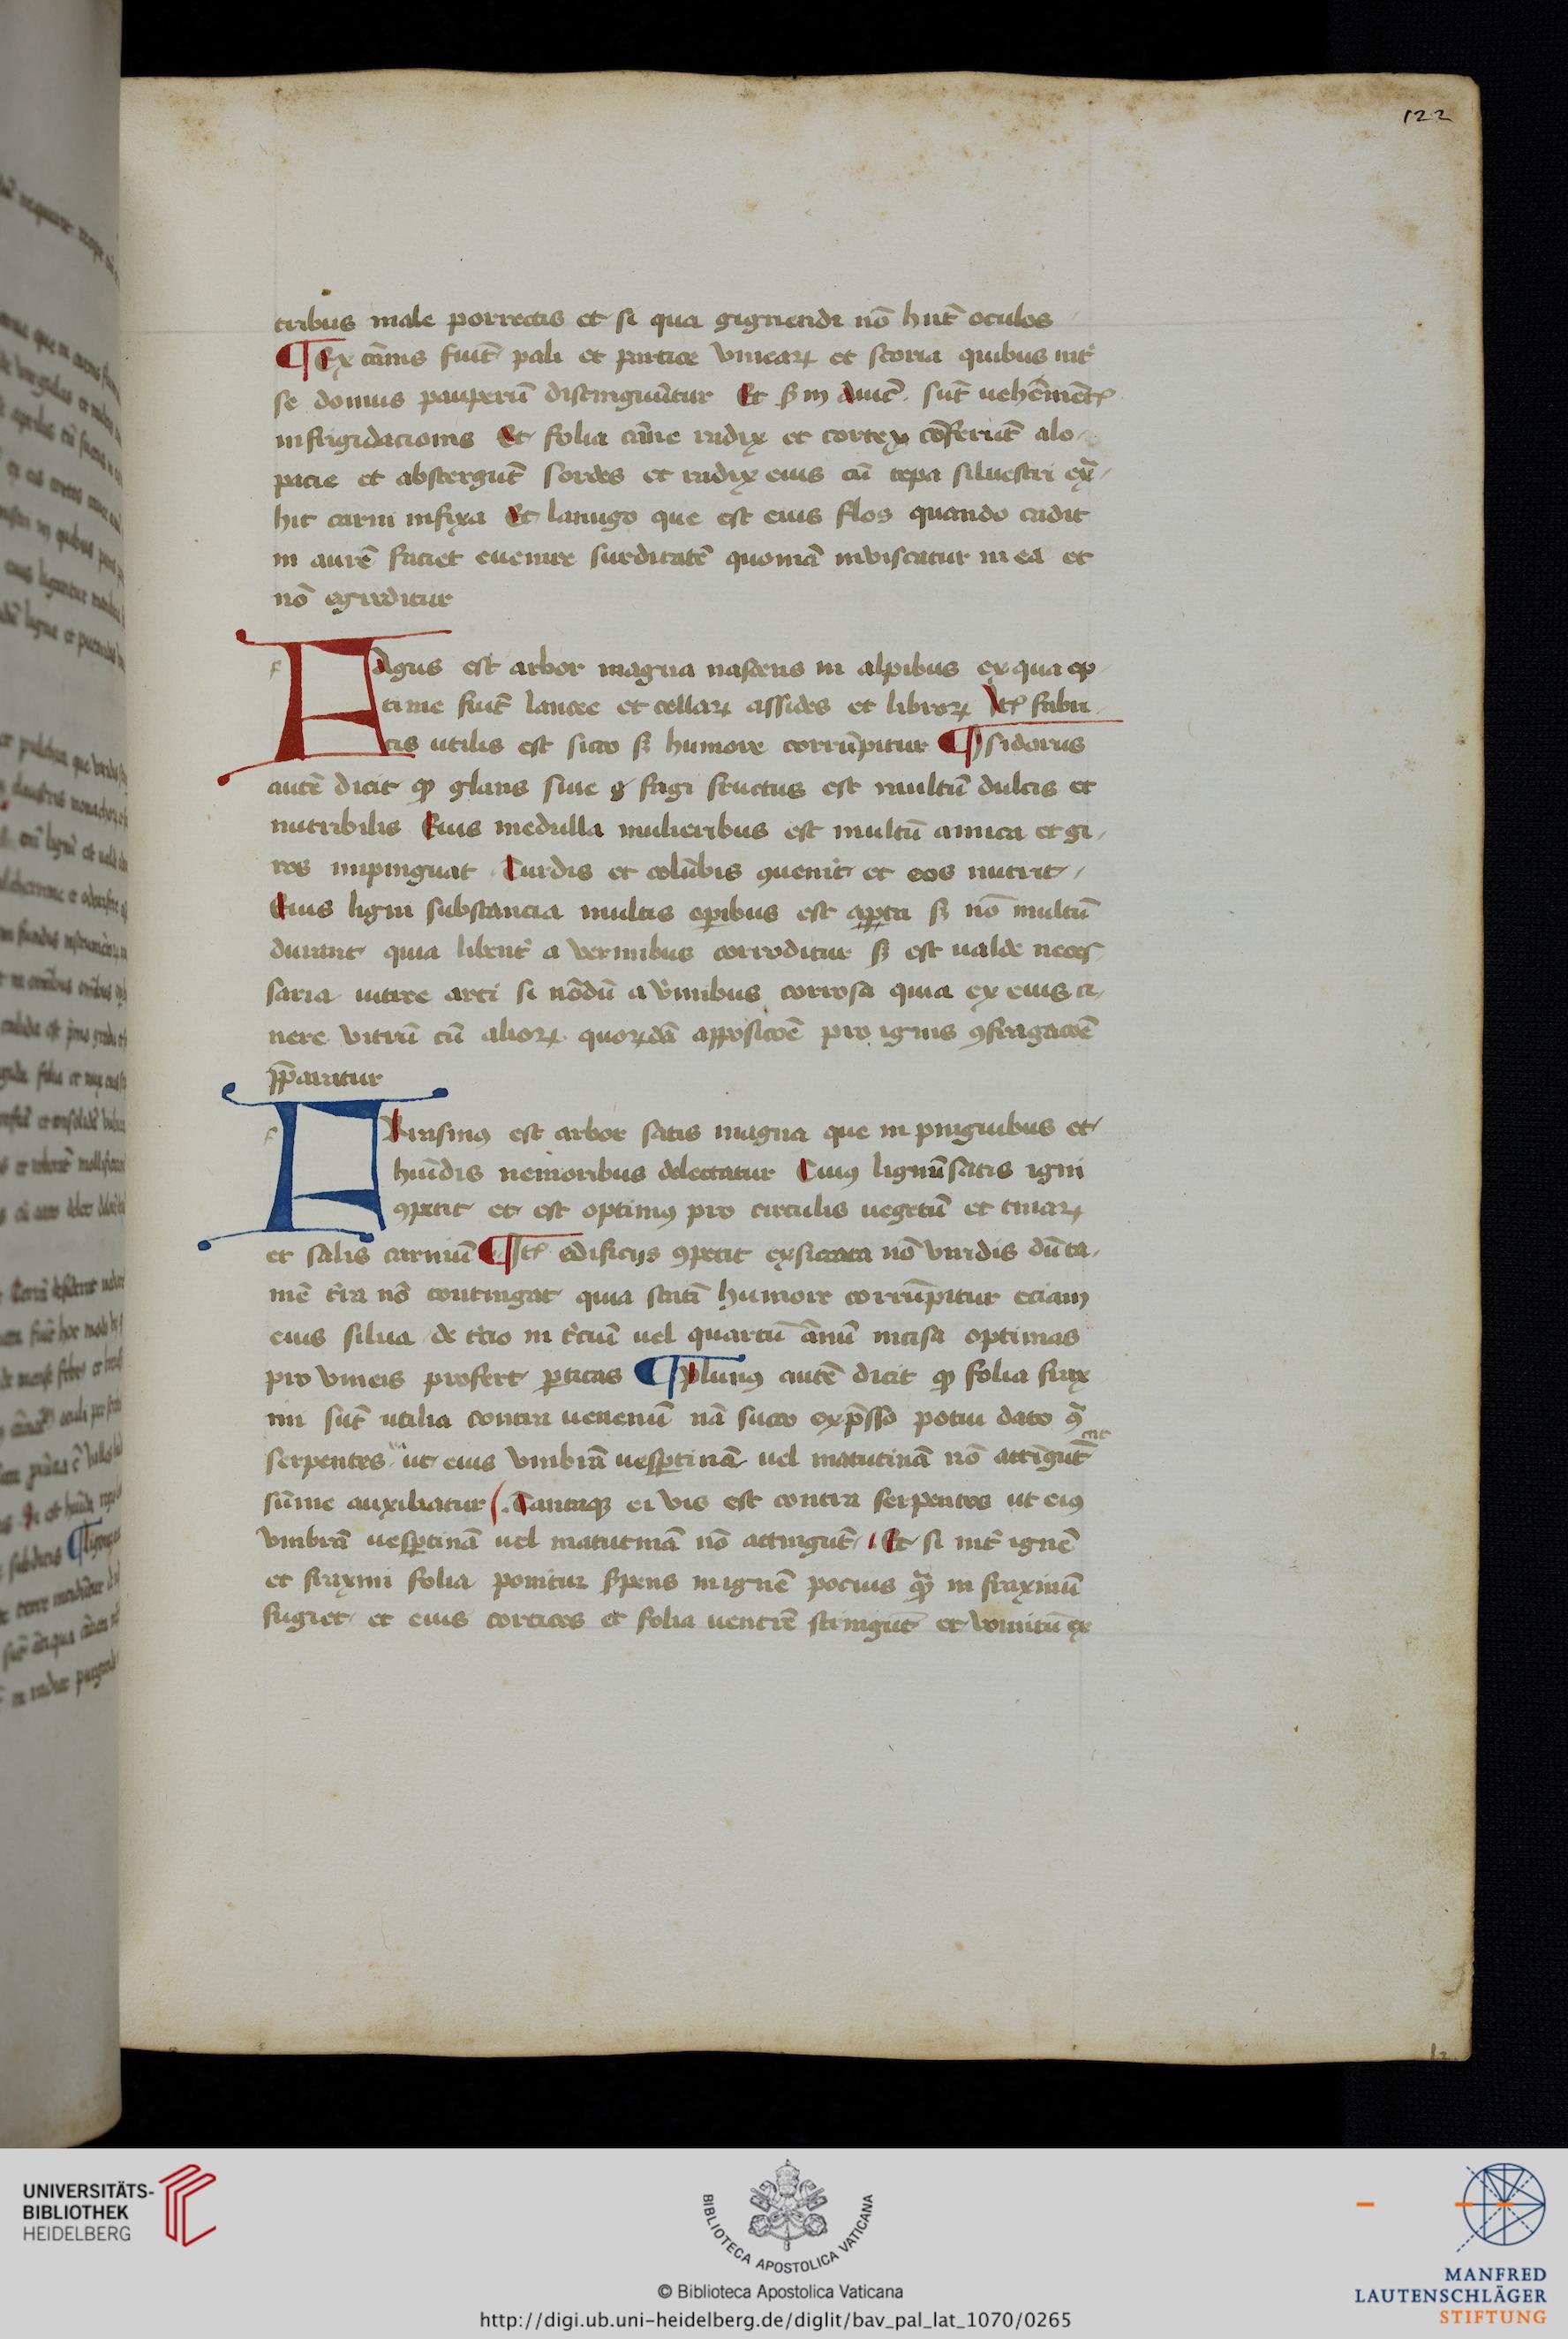 122
tribus male porrectis et si qua gignendi nō hn̄t oculos
¶ Ex cān̄is fiūt pali et partice vinearꝝ et storia quibus int̄
se domus pauperū distinguūtur Et ẜm Auic̄. sūt uehēmēt
infrigidacionis Et folia cān̄e radix et cortex cōferūt alo
pacie et abstergūt sordes et radix eius cū cepa siluestri ex̄a
hit carni infixa Et lanugo que est eius flos quando cadit
in aurē faciet euenire surditatē quoniā inviscatur in ea et
nō egreditur
f
FAgus est arbor magna nascens in alpibus ex qua op
time fiūt lancee et cellarꝝ assides et librorꝝ It fabri
cis utilis est sicco sꝫ humore corrūpitur ¶ Isidorus
autē dicit ꝙ glans siue g fagi fructus est multū dulcis et
nutribilis Eius medulla mulieribus est multū amica et gi
res inpinguat Turdis et colūbis ꝯuenit et eos nutrit
Eius ligni substancia multis oꝑibus est apta sꝫ nō multū
durant quia libent̄ a vermibus corroditur sꝫ est ualde neces
saria vitree arti si nōdū a v̄mibus corrosa quia ex eius ci
nere vitrū cū aliorꝝ quorꝝdā apposicōe pro ignis ꝯfragacōe
p̄paratur
f
FRaxinꝰ est arbor satis magna que in pinguibus et
humīdis nemoribus delectatur Cuiꝰ lignū satis igni
ꝯpetit et est optimꝰ pro circulis uegetū et tinarꝝ
et salis carniū ¶ It edificijs ꝯpetit exsiccata nō viridis dūta
mē t̄ra nō contingat quia statī humore corrūpitur eciam
eius silua de t̄cio in t̄ciū uel quartū ānū incisa optimas
pro vineis profert ꝑticas ¶ Pliniꝰ autē dicit ꝙ folia frax
ini sūt utilia contra uenenū nā succo exp̄sso potui dato ꝯ̄a
serpentes ut eius vmbrā uesꝑtinā uel matutinā nō attīgūt
sūme auxiliatur (. Tantaqꝫ ei vis est contra serpentes ut eiꝰ
vmbrā uesꝑtinā uel matutinā nō attingūt Et si int̄ ignē
et fraxini folia ponitur ẜpens in ignē pocius qͣꝫ in fraxinū
fugiet et eius cortices et folia uentrē stringūt et vomitū ex
UNIVERSITÄTS-
BIBLIOTHEK
HEIDELBERG
BIBLIOTECA APOSTOLICA VATICANA
© Biblioteca Apostolica Vaticana
http://digi.ub.uni-heidelberg.de/diglit/bav_pal_lat_1070/0265
MANFRED
LAUTENSCHLÄGER
STIFTUNG